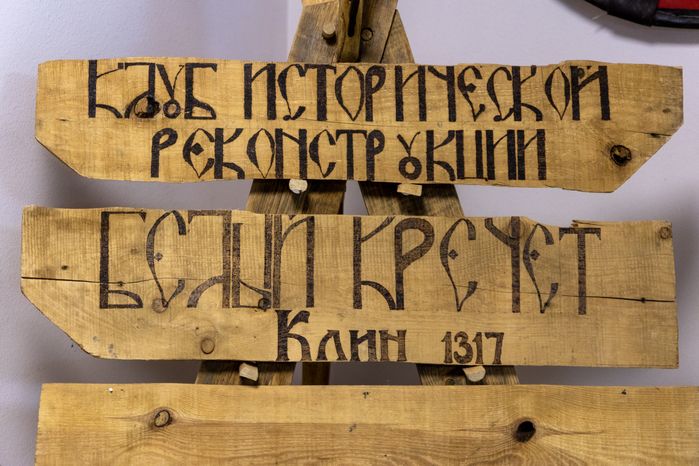 КЛУБ ИСТОРИЧЕСКОЙ
РЕКОНСТРУКЦИИ
БЕЛЫЙ КРЕЧЕТ
Клин 1317